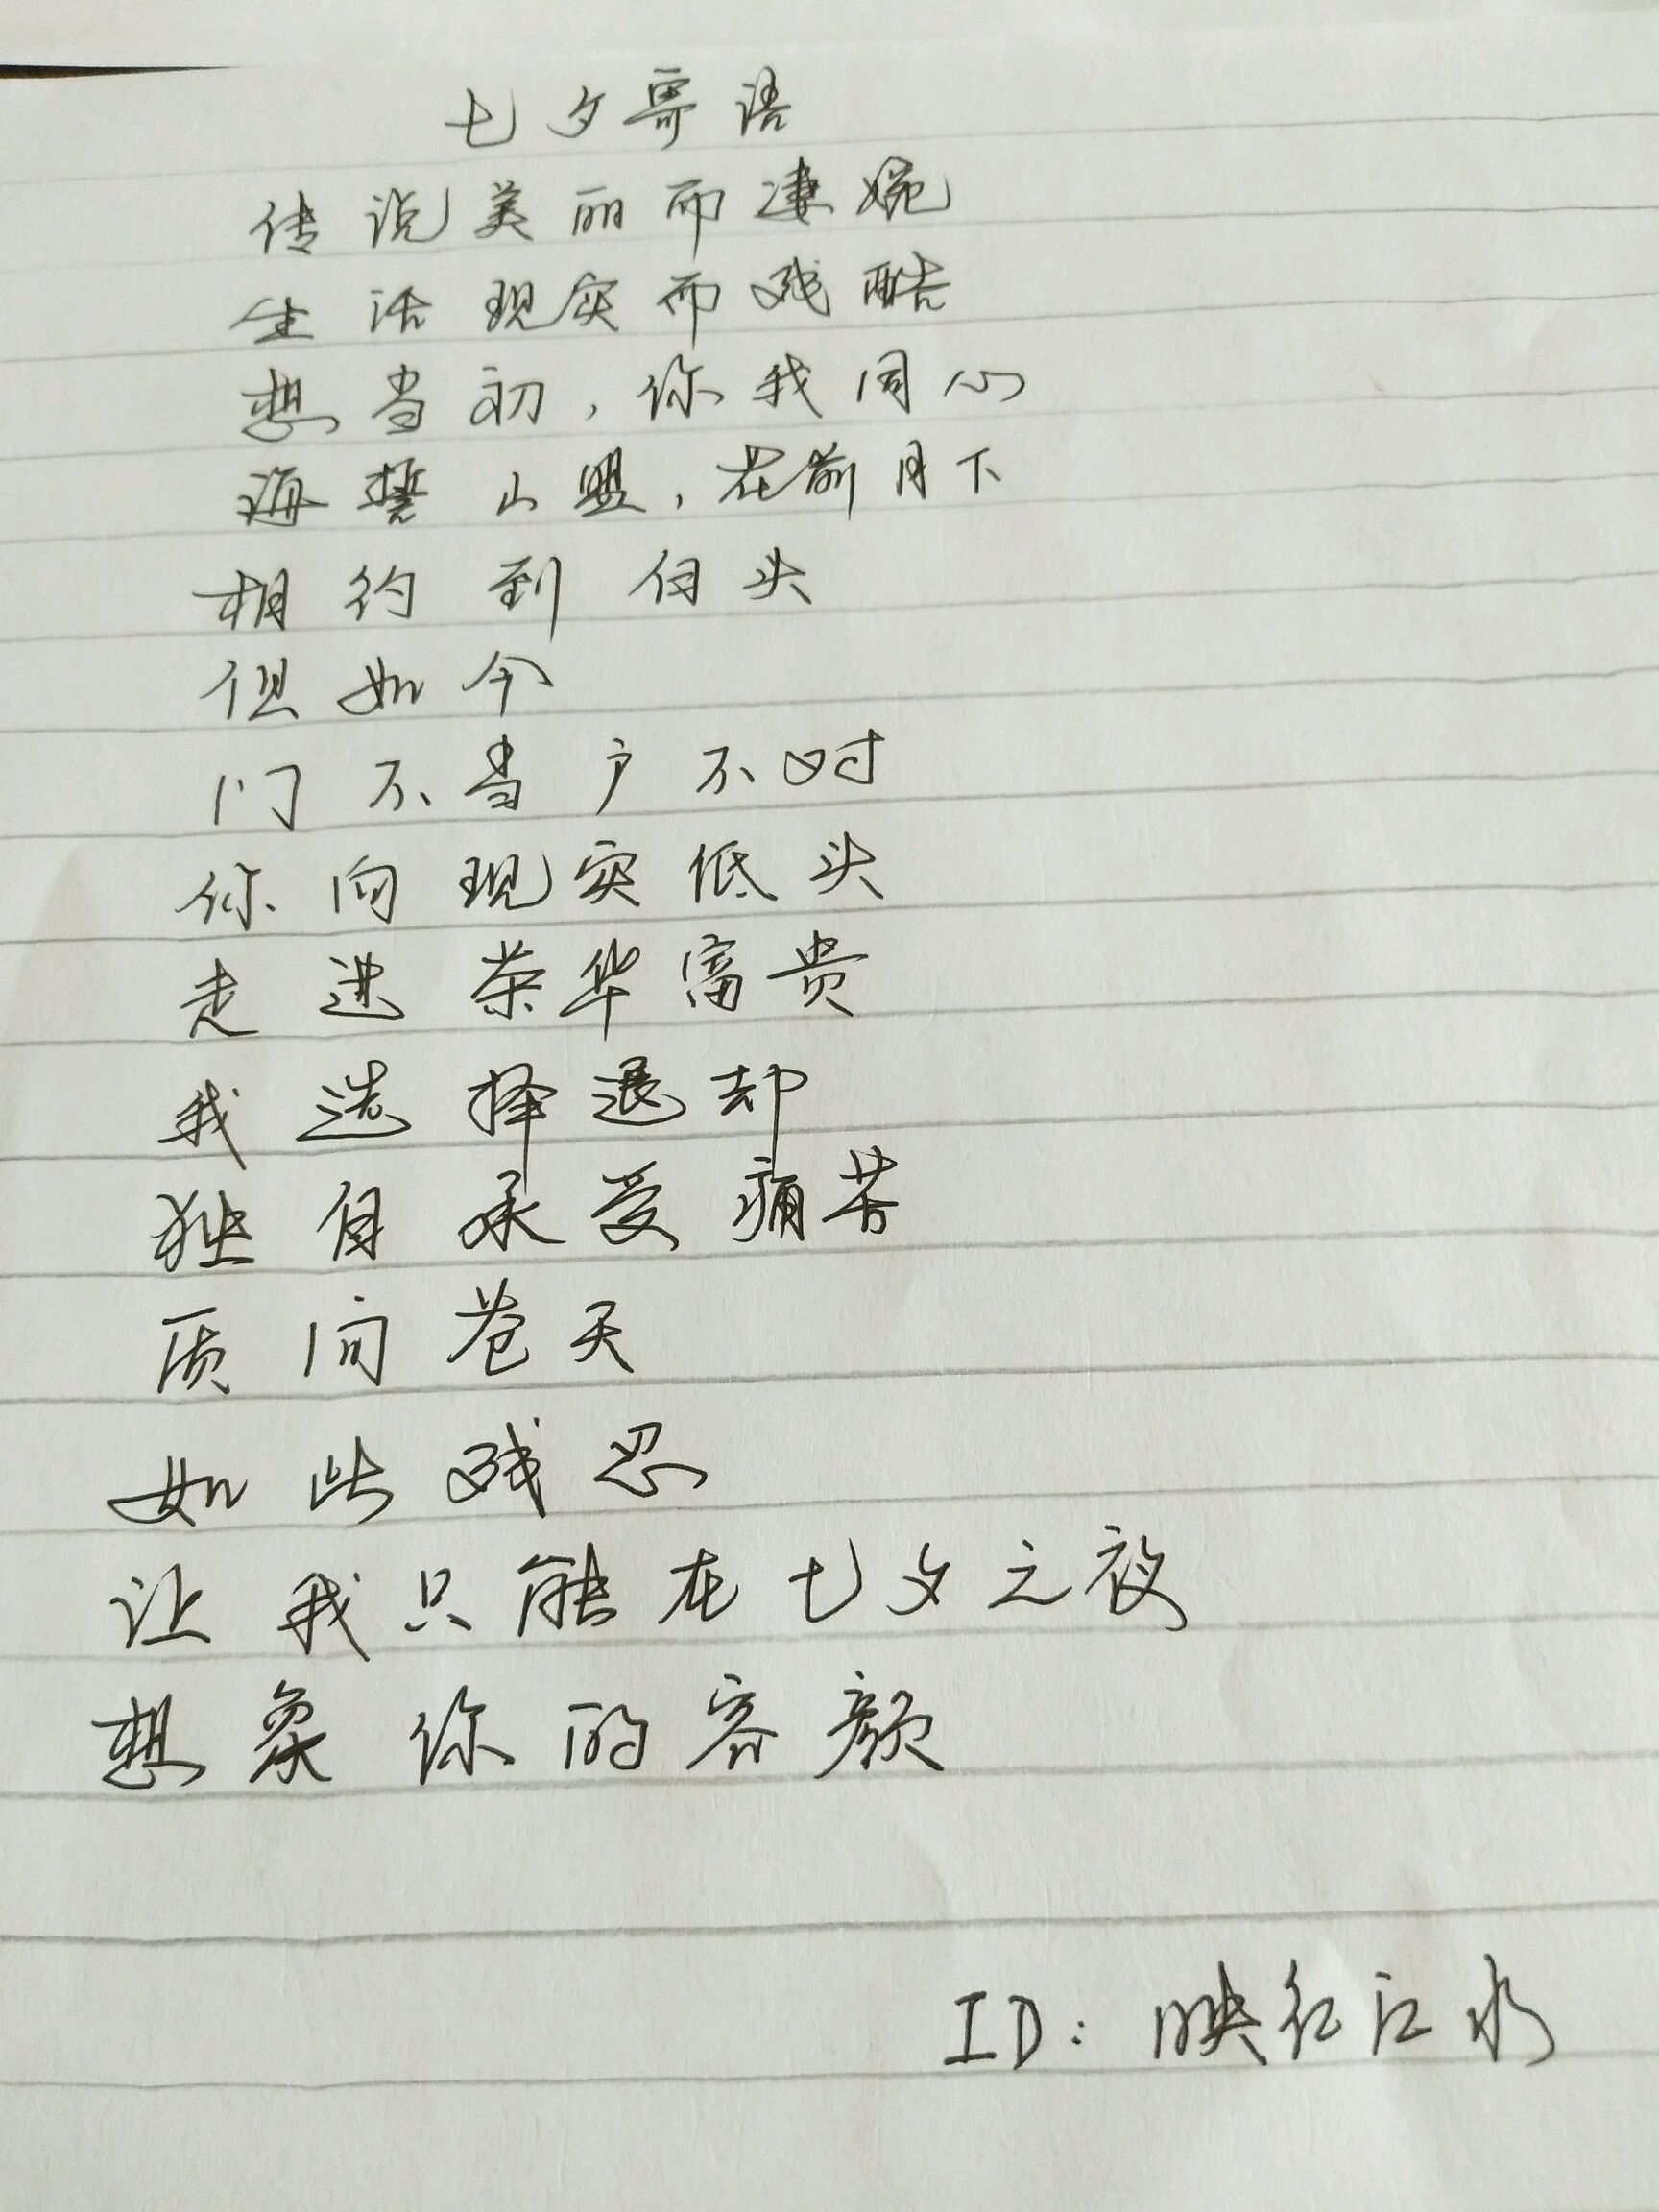 七夕寄语
传说美丽而凄婉
生活现实而残酷
想当初，你我同心
海誓山盟，花前月下
相约到白头
但如今
门不当户不对
你向现实低头
走进荣华富贵
我选择退却
独自承受痛苦
质问苍天
如此残忍
让我只能在七夕之夜
想象你的容颜
ID：映红江水